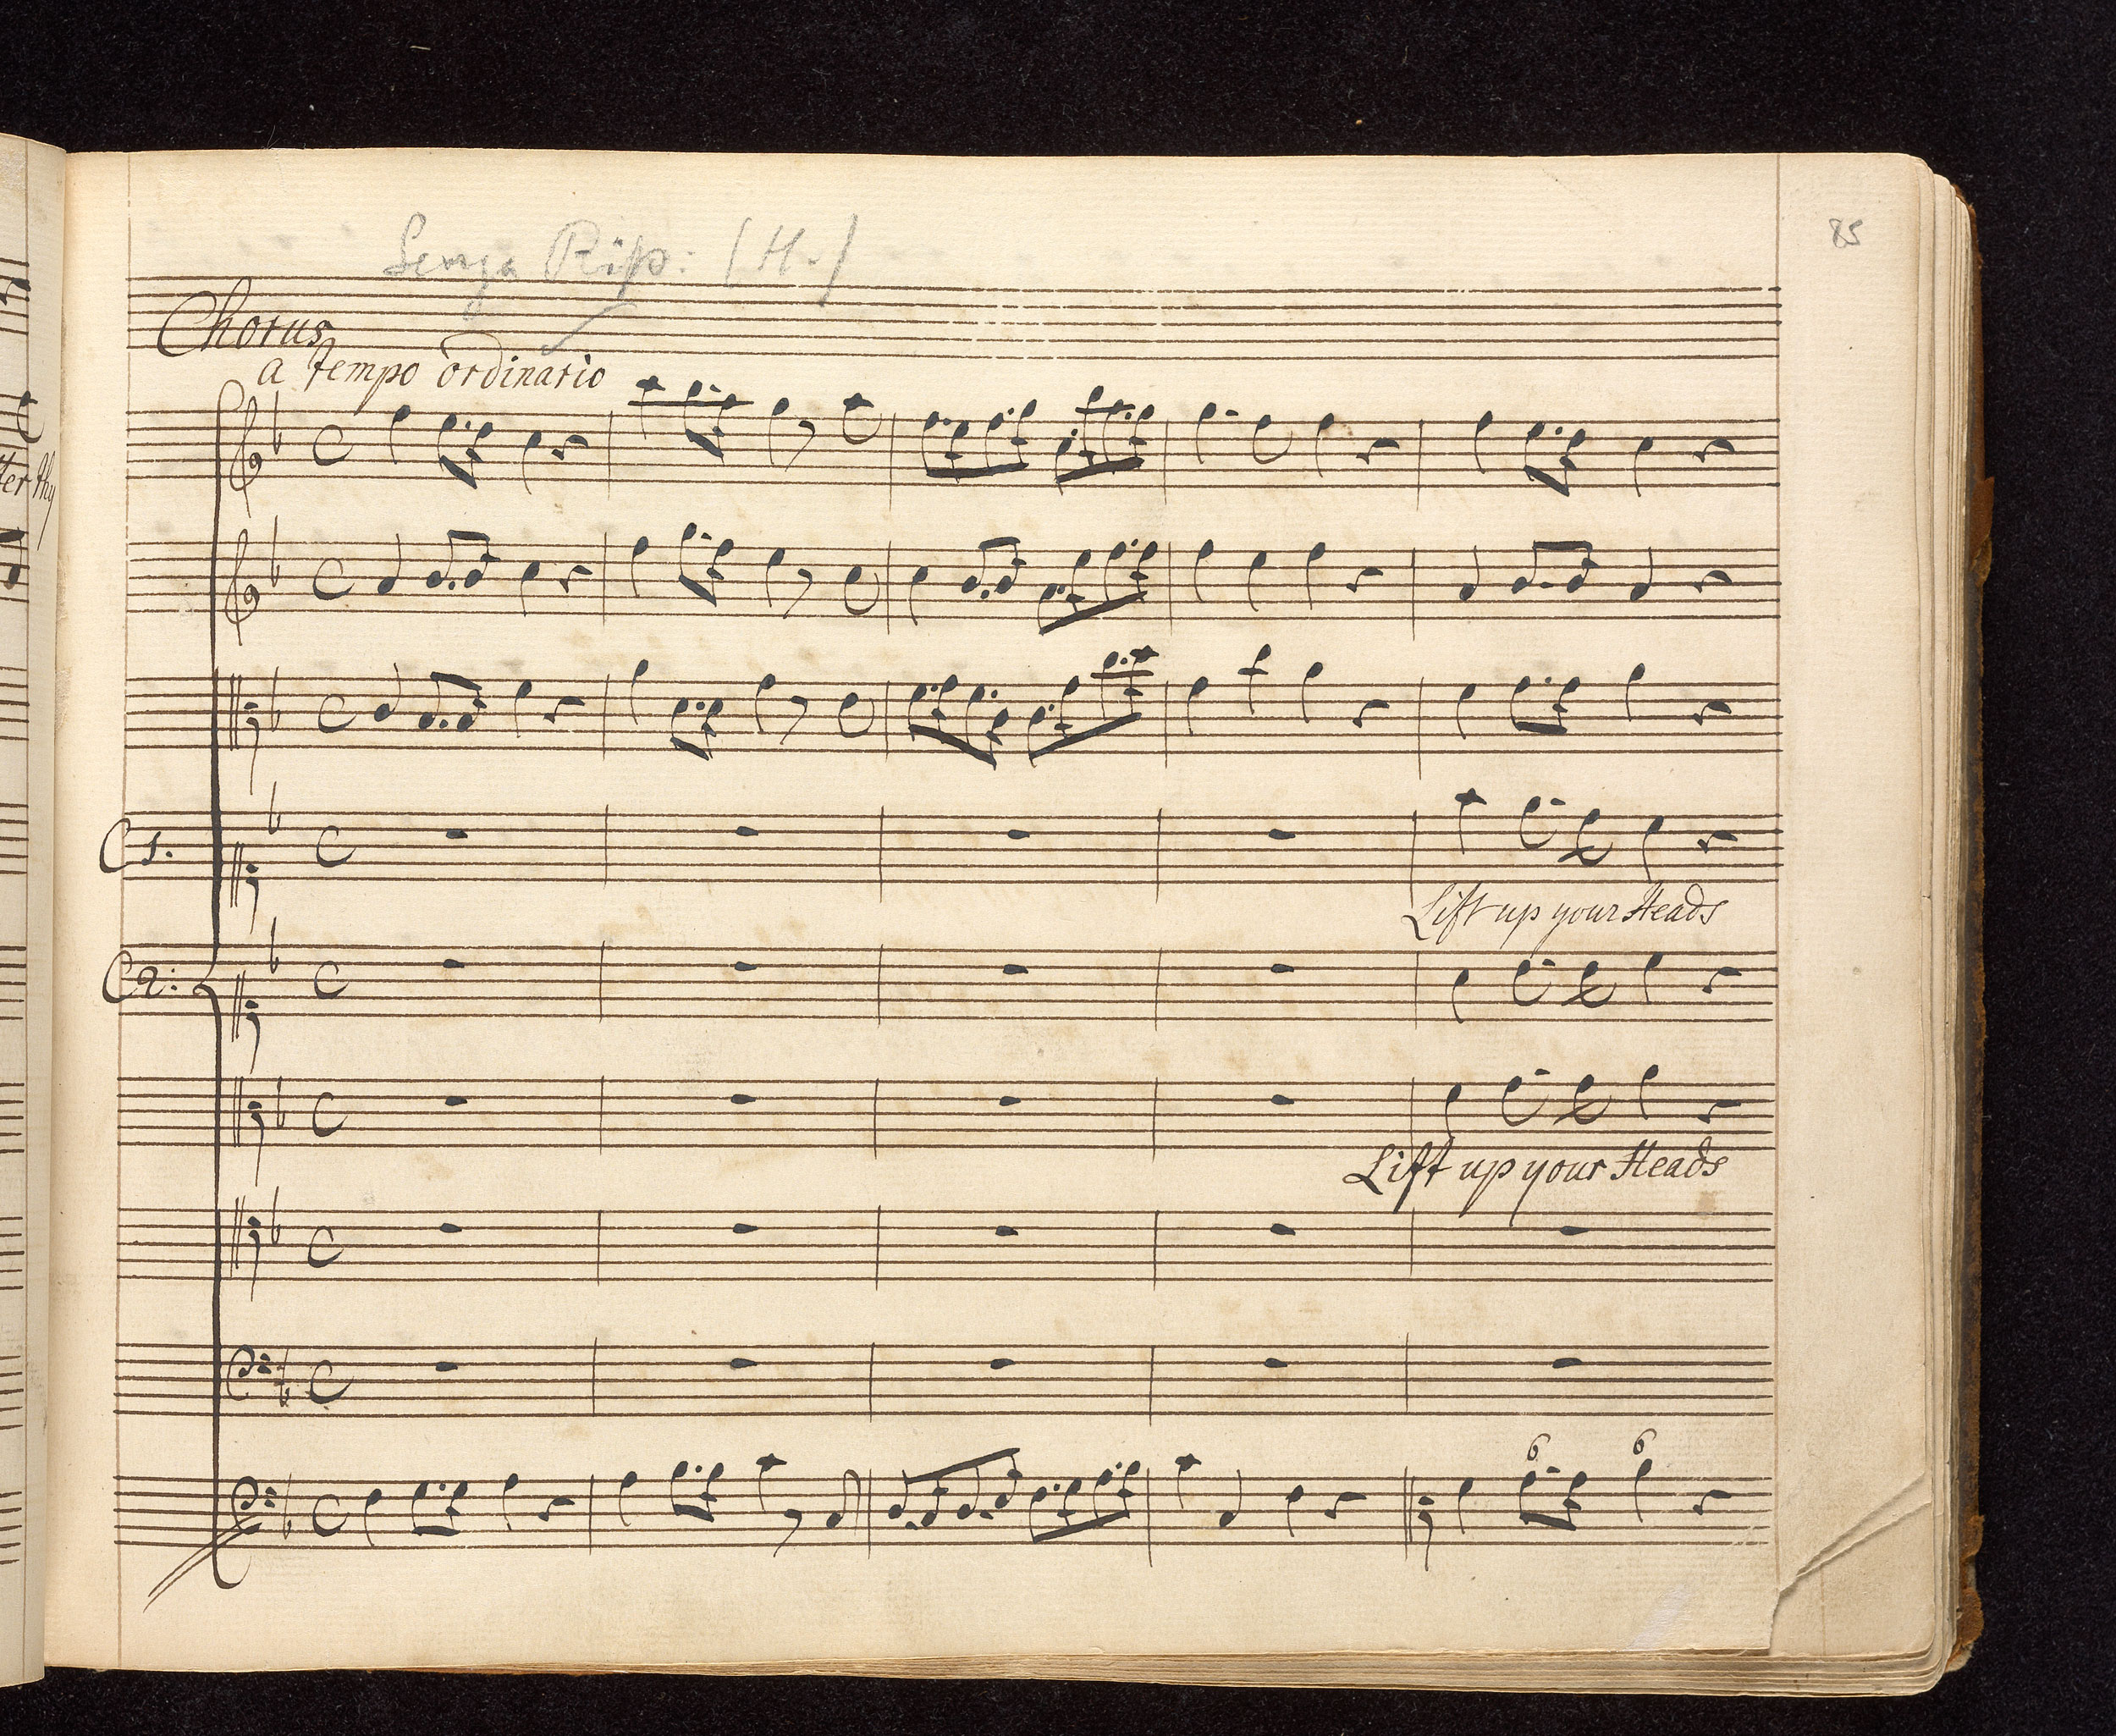 85
Senza Rip: (H.)
Chorus
a tempo ordinario
ter thy
C1.
Lift up your Heads
C2:
Lift up your Heads
6 6